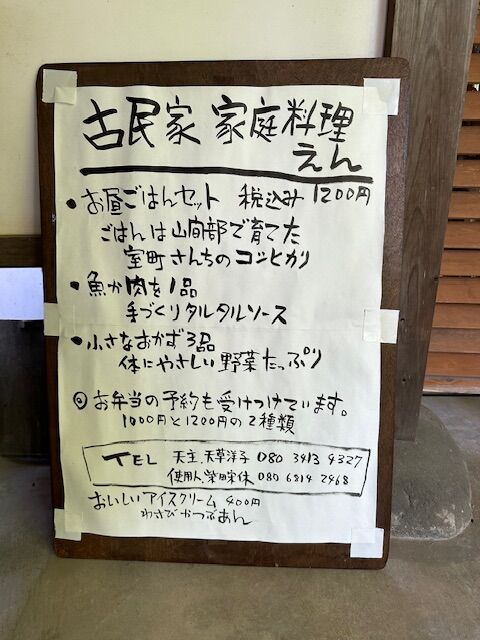 古民家 家庭料理
えん
• お昼ごはんセット 税込み 1200円
ごはんは山間部で育てた
室町さんちのコシヒカリ
• 魚か肉を1品
手づくりタルタルソース
• 小さなおかず3品
体にやさしい野菜たっぷり
◎ お弁当の予約も受けつけています。
1000円と1200円の2種類
TEL 店主 天草洋子 080 3413 9327
使用人 080 6814 2468
おいしいアイスクリーム 400円
わさび かつぶ あん